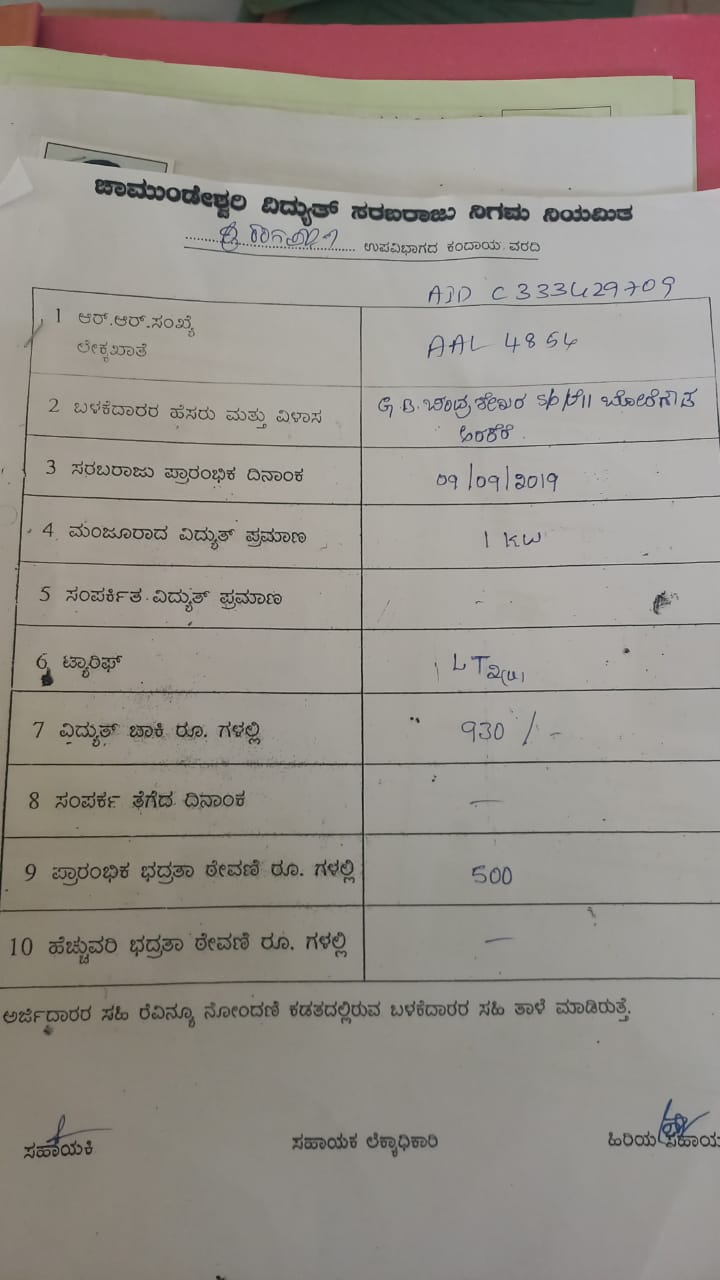 ಚಾಮುಂಡೇಶ್ವರಿ ವಿದ್ಯುತ್ ಸರಬರಾಜು ನಿಗಮ ನಿಯಮಿತ
ಉಪವಿಭಾಗದ ಕಂದಾಯ ವರದಿ
AJD C333429709
1 ಆರ್.ಆರ್.ಸಂಖ್ಯೆ
ಲೆಕ್ಕಖಾತೆ
AAL 4854
2 ಬಳಕೆದಾರರ ಹೆಸರು ಮತ್ತು ವಿಳಾಸ
G B. ಚಂದ್ರಶೇಖರ S/o ಬೋರೆಗೌಡ
3 ಸರಬರಾಜು ಪ್ರಾರಂಭಿಕ ದಿನಾಂಕ 09/09/2019
4 ಮಂಜೂರಾದ ವಿದ್ಯುತ್ ಪ್ರಮಾಣ 1 KW
5 ಸಂಪರ್ಕಿತ ವಿದ್ಯುತ್ ಪ್ರಮಾಣ -
6 ಟ್ಯಾರಿಫ್ LT
7 ವಿದ್ಯುತ್ ಬಾಕಿ ರೂ. ಗಳಲ್ಲಿ 930/-
8 ಸಂಪರ್ಕ ತೆಗೆದ ದಿನಾಂಕ —
9 ಪ್ರಾರಂಭಿಕ ಭದ್ರತಾ ಠೇವಣಿ ರೂ. ಗಳಲ್ಲಿ 500
10 ಹೆಚ್ಚುವರಿ ಭದ್ರತಾ ಠೇವಣಿ ರೂ. ಗಳಲ್ಲಿ —
ಅರ್ಜಿದಾರರ ಸಹಿ ರೆವಿನ್ಯೂ ನೋಂದಣಿ ಕಡತದಲ್ಲಿರುವ ಬಳಕೆದಾರರ ಸಹಿ ತಾಳೆ ಮಾಡಿರುತ್ತೆ.
ಸಹಾಯಕಿ ಸಹಾಯಕ ಲೆಕ್ಕಾಧಿಕಾರಿ ಹಿರಿಯ ಸಹಾಯ